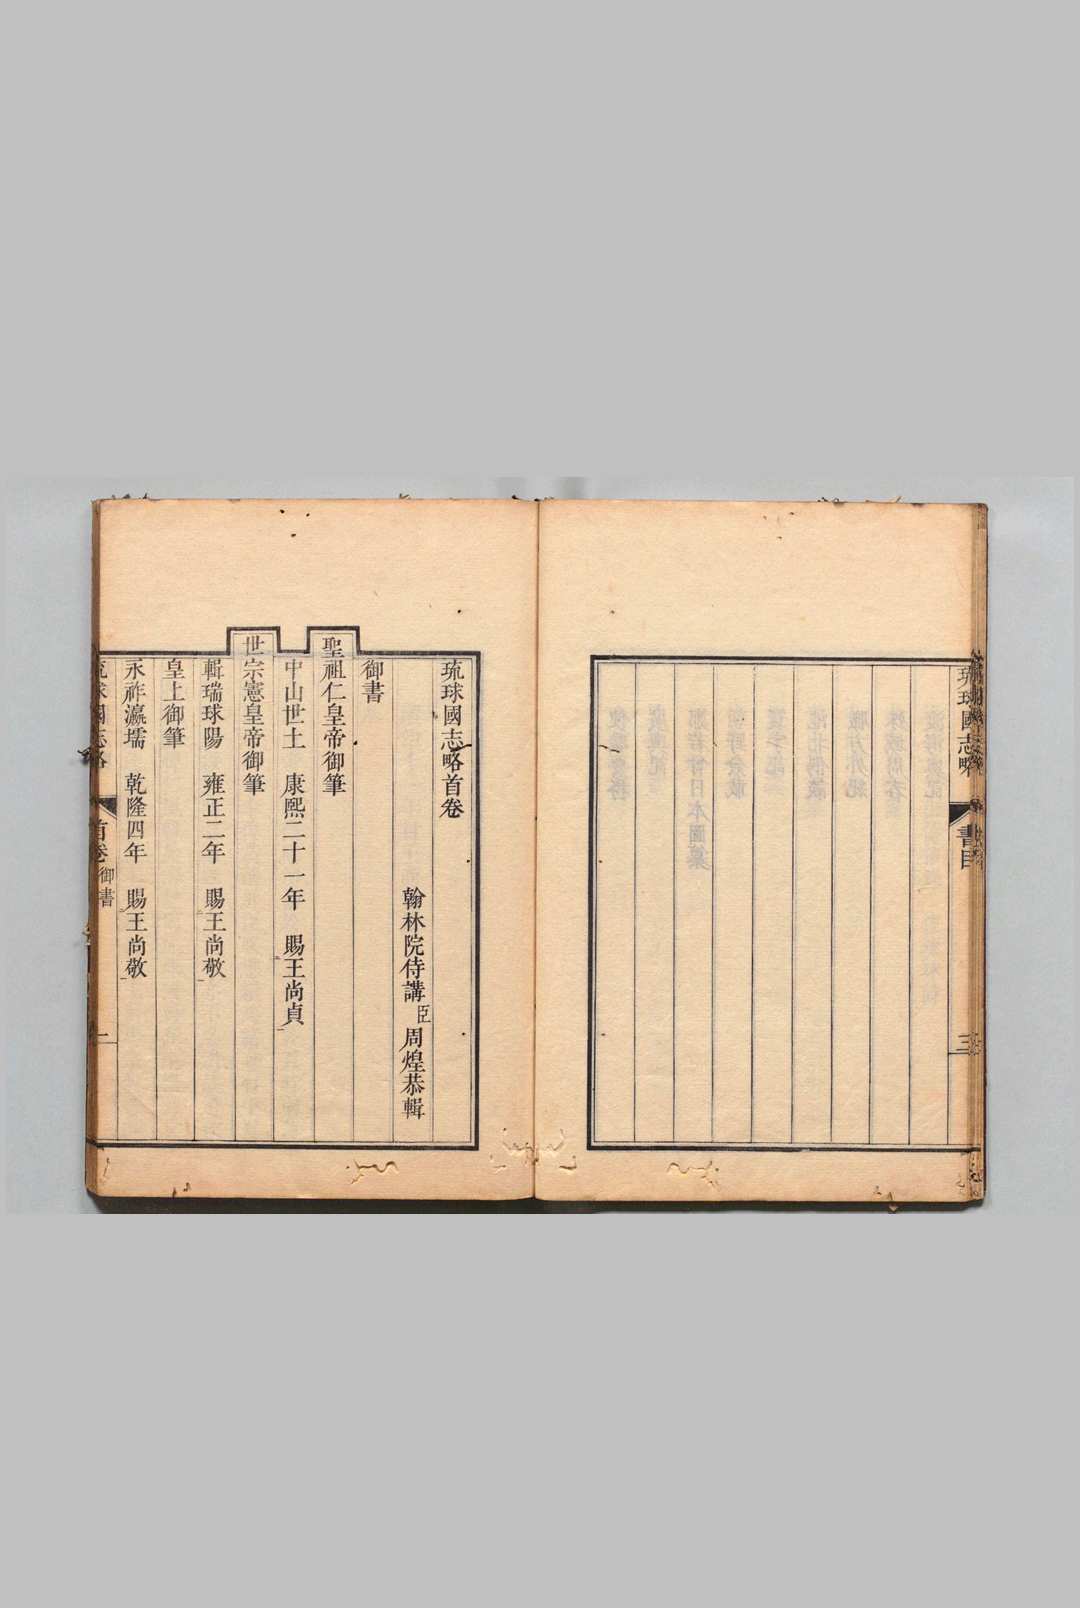 琉球國志略
書目
三
琉球國志略首卷
翰林院侍講臣周煌恭輯
御書
聖祖仁皇帝御筆
中山世土 康熙二十一年 賜王尚貞
世宗憲皇帝御筆
輯瑞球陽 雍正二年 賜王尚敬
皇上御筆
永祚瀛壖 乾隆四年 賜王尚敬
琉球國志略
首卷
御書
一